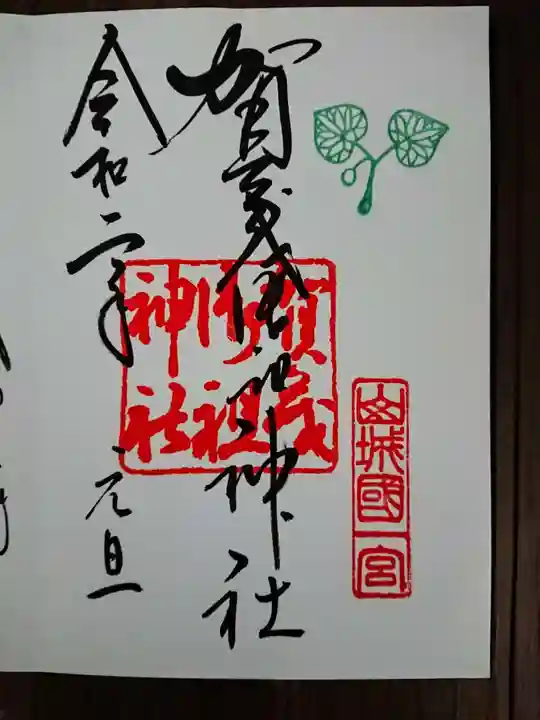 山城國一宮
賀茂御祖神社
賀茂
御祖
神社
令和二年 元旦